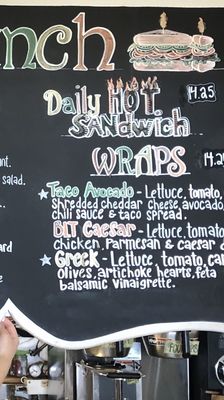 nch
14.25
Daily HOT
SANDWICH
WRAPS
14.2
nt.
salad.
Taco Avocado - Lettuce, tomato,
Shredded cheddar cheese, avocado,
chili sauce & taco spread.
BLT Caesar - Lettuce, tomato
Chicken, Parmesan & caesar
ard
Greek - Lettuce, tomato, ca
Olives, artichoke hearts, feta
balsamic vinaigrette.